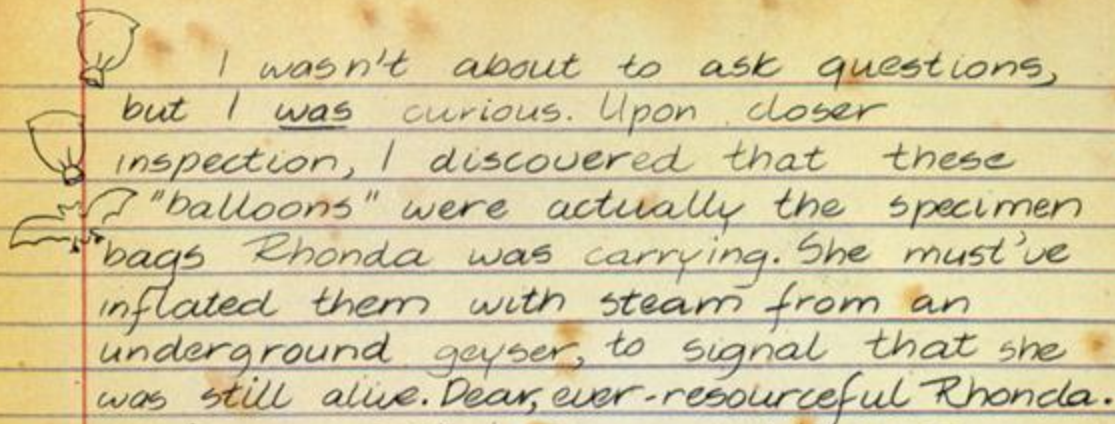 I wasn't about to ask questions,
but I was curious. Upon closer
inspection, I discovered that these
"balloons" were actually the specimen
bags Rhonda was carrying. She must've
inflated them with steam from an
underground geyser, to signal that she
was still alive. Dear, ever-resourceful Rhonda.